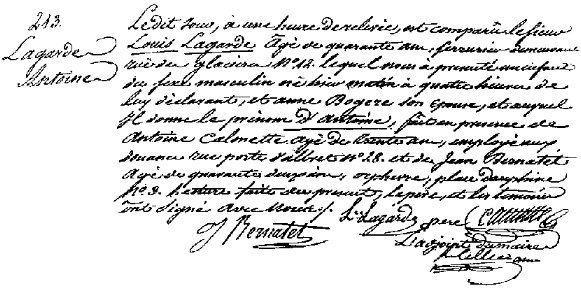 213.
Lagarde
Antoine
Ledit Jour, à une heure de relevée, est comparu le sieur
Louis Lagarde Agé de quarante ans, serrurier demeurant
rue des glacières N° 14. lequel nous a présenté un enfant
du sexe masculin né hier matin à quatre heures de
luy déclarant, et anne Bogere son épouse, et auquel
Il donne le prénom d'Antoine, fait en presence de
Antoine Calmette agé de trente ans, employé aux
douanes rue porte d'albret N° 28. et de Jean Bernatet
Agé de quarante deux ans, orphevre, place dauphine
n° 9. Lecture faite du present, le père, et les temoins
ont signé avec Nous ./.
Ls Lagarde père
J Bernatet
L'adjoint du maire